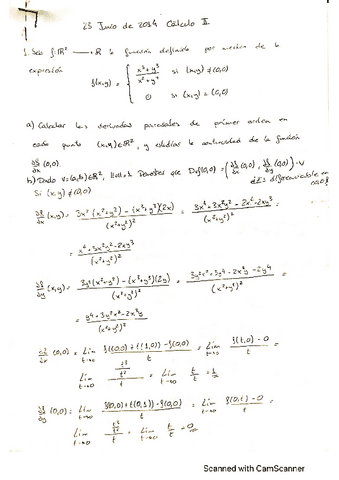 23 Junio de 2014 Cálculo II
1. Sea f: ℝ² → ℝ la función definida por medio de la
expresión
f(x,y) = { (x³+y³)/(x²+y²) si (x,y) ≠ (0,0)
0 si (x,y) = (0,0)
a) Calcular las derivadas parciales de primer orden en
cada punto (x,y) ∈ ℝ², y estudiar la continuidad de la función
∂f/∂x (0,0)
b) Dado v=(a,b) ∈ ℝ², ||v||=1 Demostrar que Dvf(0,0) = (∂f/∂x (0,0), ∂f/∂y (0,0)) · v
¿Es diferenciable en (0,0)?
Si (x,y) ≠ (0,0)
∂f/∂x (x,y) = (3x²(x²+y²) - (x³+y³)(2x))/(x²+y²)² = (3x⁴+3x²y²-2x⁴-2xy³)/(x²+y²)² =
= (x⁴+3x²y²-2xy³)/(x²+y²)²
∂f/∂y (x,y) = (3y²(x²+y²) - (x³+y³)(2y))/(x²+y²)² = (3y²x²+3y⁴-2x³y-2y⁴)/(x²+y²)² =
= (y⁴+3y²x²-2x³y)/(x²+y²)²
∂f/∂x (0,0) = Lim t→0 (f((0,0)+t(1,0)) - f(0,0))/t = Lim t→0 (f(t,0)-0)/t =
= Lim t→0 (t³/t²)/t = Lim t→0 t/t = 1
∂f/∂y (0,0) = Lim t→0 (f(0,0)+t(0,1)) - f(0,0))/t = Lim t→0 (f(0,t)-0)/t =
= Lim t→0 (t³/t²)/t = Lim t→0 t/t
Scanned with CamScanner